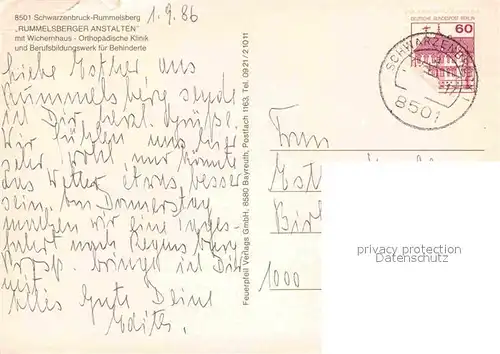 8501 Schwarzenbruck-Rummelsberg
„RUMMELSBERGER ANSTALTEN"
mit Wichernhaus - Orthopädische Klinik
und Berufsbildungswerk für Behinderte
1.9.86
Liebe Esther aus
Rummelsberg sende
ich Dir herzl. Grüße.
Wir fühlen uns hier
sehr wohl nur könnte
das Wetter etwas besser
sein. Am Donnerstag
machen wir eine Tages-
fahrt nach Regensburg
Prosp. bringe ich Dir
mit
Alles Gute Deine
Feuerpfeil Verlags GmbH, 8580 Bayreuth, Postfach 1163, Tel. 0921/21011
DEUTSCHE BUNDESPOST BERLIN
60
SCHWARZENBRUCK 1
8501
Frau
1000
privacy protection
DARABANTH.COM